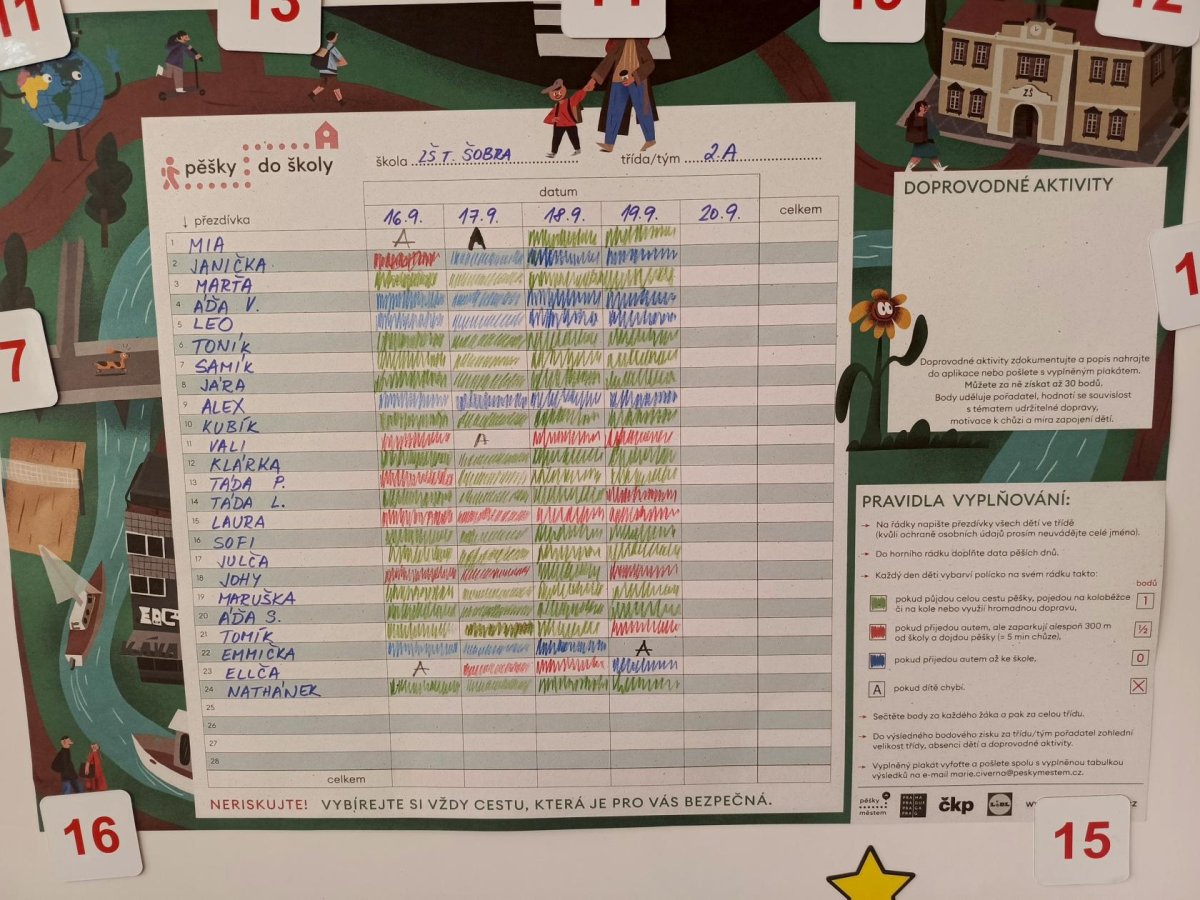 11
13
11
10
12
ZŠ
pěšky do školy
škola ZŠ T. ŠOBRA
třída/tým 2.A
datum
celkem
↓ přezdívka
16.9. 17.9. 18.9. 19.9. 20.9.
1 MIA A A
2 JANIČKA
3 MARŤA
4 AĎA V.
5 LEO
6 TONÍK
7 SAMÍK
8 JÁRA
9 ALEX
10 KUBÍK
11 VALI A
12 KLÁRKA
13 TÁĎA P.
14 TÁĎA L.
15 LAURA
16 SOFI
17 JULČA
18 JOHY
19 MARUŠKA
20 AĎA S.
21 TOMÍK
22 EMMIČKA A
23 ELLČA A
24 NATHÁNEK
25
26
27
28
celkem
NERISKUJTE! VYBÍREJTE SI VŽDY CESTU, KTERÁ JE PRO VÁS BEZPEČNÁ.
7
16
DOPROVODNÉ AKTIVITY
1
Doprovodné aktivity zdokumentujte a popis nahrajte
do aplikace nebo pošlete s vyplněným plakátem.
Můžete za ně získat až 30 bodů.
Body uděluje pořadatel, hodnotí se souvislost
s tématem udržitelné dopravy,
motivace k chůzi a míra zapojení dětí.
PRAVIDLA VYPLŇOVÁNÍ:
→ Na řádky napište přezdívky všech dětí ve třídě
(kvůli ochraně osobních údajů prosím neuvádějte celé jméno).
→ Do horního řádku doplňte data pěších dnů.
→ Každý den děti vybarví políčko na svém řádku takto:
bodů
pokud půjdou celou cestu pěšky, pojedou na koloběžce 1
či na kole nebo využijí hromadnou dopravu,
pokud přijedou autem, ale zaparkují alespoň 300 m ½
od školy a dojdou pěšky (= 5 min chůze),
pokud přijedou autem až ke škole, 0
A pokud dítě chybí.
→ Sečtěte body za každého žáka a pak za celou třídu.
→ Do výsledného bodového zisku za třídu/tým pořadatel zohlední
velikost třídy, absenci dětí a doprovodné aktivity.
→ Vyplněný plakát vyfoťte a pošlete spolu s vyplněnou tabulkou
výsledků na e-mail marie.civerna@peskymestem.cz.
pěšky městem
PRAHA PRAGUE PRAGA PRAG
čkp
LIDL
15